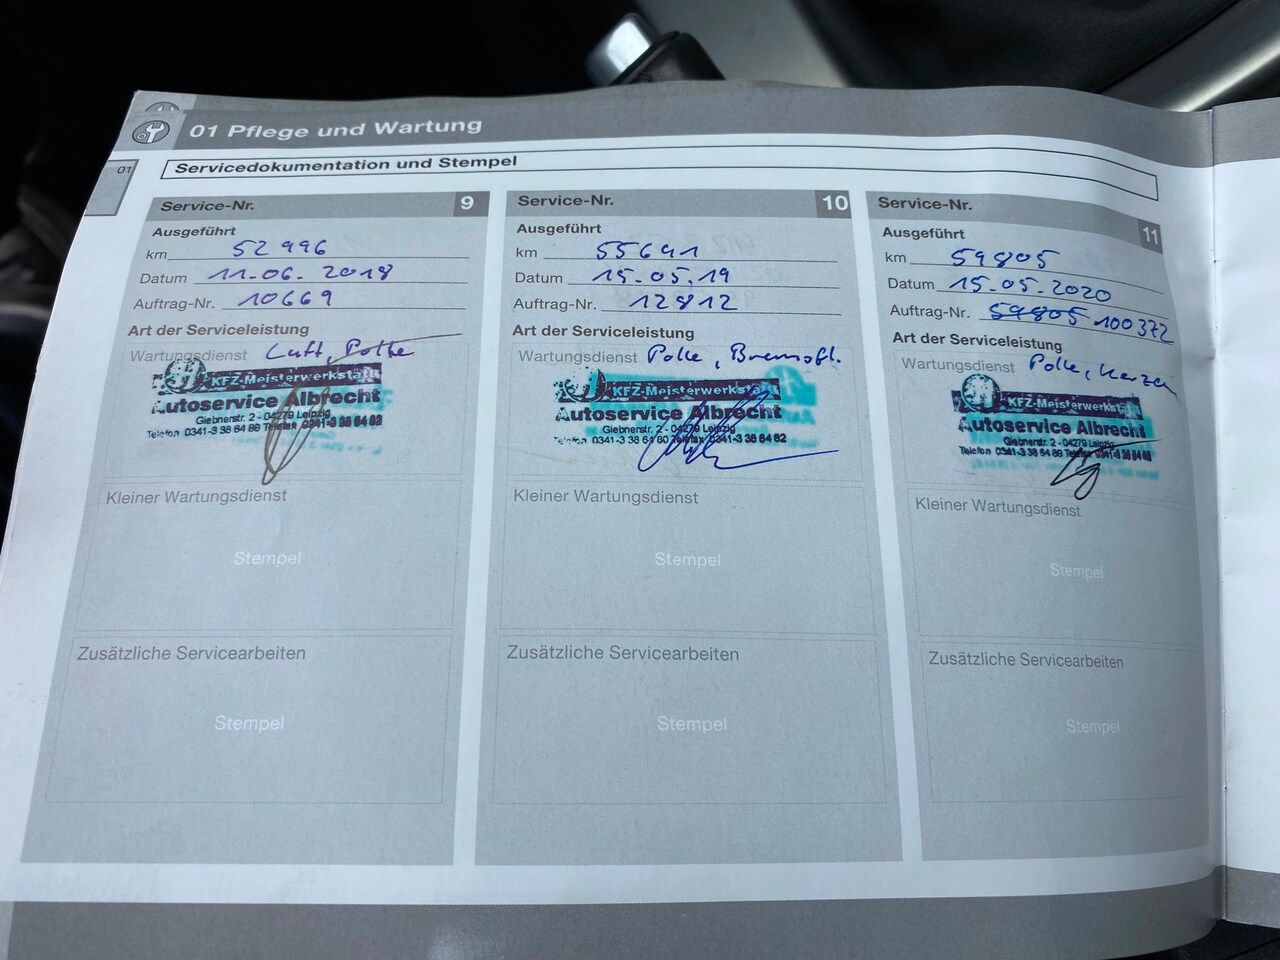 01 Pflege und Wartung
01
Servicedokumentation und Stempel
Service-Nr. 9
Ausgeführt
km 52996
Datum 11.06.2018
Auftrag-Nr. 10669
Art der Serviceleistung
Wartungsdienst Luft, Polle
KFZ-Meisterwerkstatt
Autoservice Albrecht
Giebnerstr. 2 - 04279 Leipzig
Telefon 0341-3 38 64 80 Telefax 0341-3 38 64 82
Kleiner Wartungsdienst
Stempel
Zusätzliche Servicearbeiten
Stempel
Service-Nr. 10
Ausgeführt
km 55641
Datum 15.05.19
Auftrag-Nr. 12812
Art der Serviceleistung
Wartungsdienst Polle, Bremsfl.
KFZ-Meisterwerkstatt
Autoservice Albrecht
Giebnerstr. 2 - 04279 Leipzig
Telefon 0341-3 38 64 80 Telefax 0341-3 38 64 82
Kleiner Wartungsdienst
Stempel
Zusätzliche Servicearbeiten
Stempel
Service-Nr. 11
Ausgeführt
km 59805
Datum 15.05.2020
Auftrag-Nr. 59805 100372
Art der Serviceleistung
Wartungsdienst Polle, Kerzen
KFZ-Meisterwerkstatt
Autoservice Albrecht
Giebnerstr. 2 - 04279 Leipzig
Telefon 0341-3 38 64 80 Telefax 0341-3 38 64 82
Kleiner Wartungsdienst
Stempel
Zusätzliche Servicearbeiten
Stempel